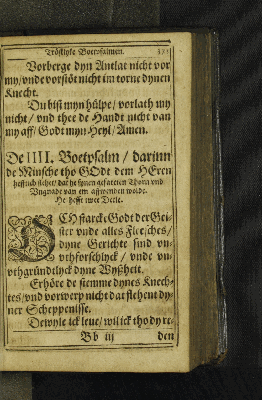 Tröstlyke Boetpsalmen.
Vorberge dyn Antlat nicht vor
my/vnde vorstöt nicht im torne dynen
Knecht.
Du bist myn hülpe/vorlath my
nicht/vnd thee de Handt nicht van
my aff/Godt myn Heyl/Amen.
De IIII. Boetpsalm/darinn
de Minsche tho GOdt dem HEren
süchtet/dat he synen gefateden Thorn vnd
Vngnade van em affwenden wolde.
He hefft twee Deele.
OCH starcke Godt der Gei-
ster vnde alles Fleesches/
dyne Gerichte sind vn-
vthforschlyck/vnde vn-
vthgründtlyck dyne Wyßheit.
Erhöre de stemme dynes Knech-
tes/vnd vorwerp nicht dat flehent dy-
ner Scheppenisse.
Dewyle ick leue/wil ick tho dy re-
Bb iij
den